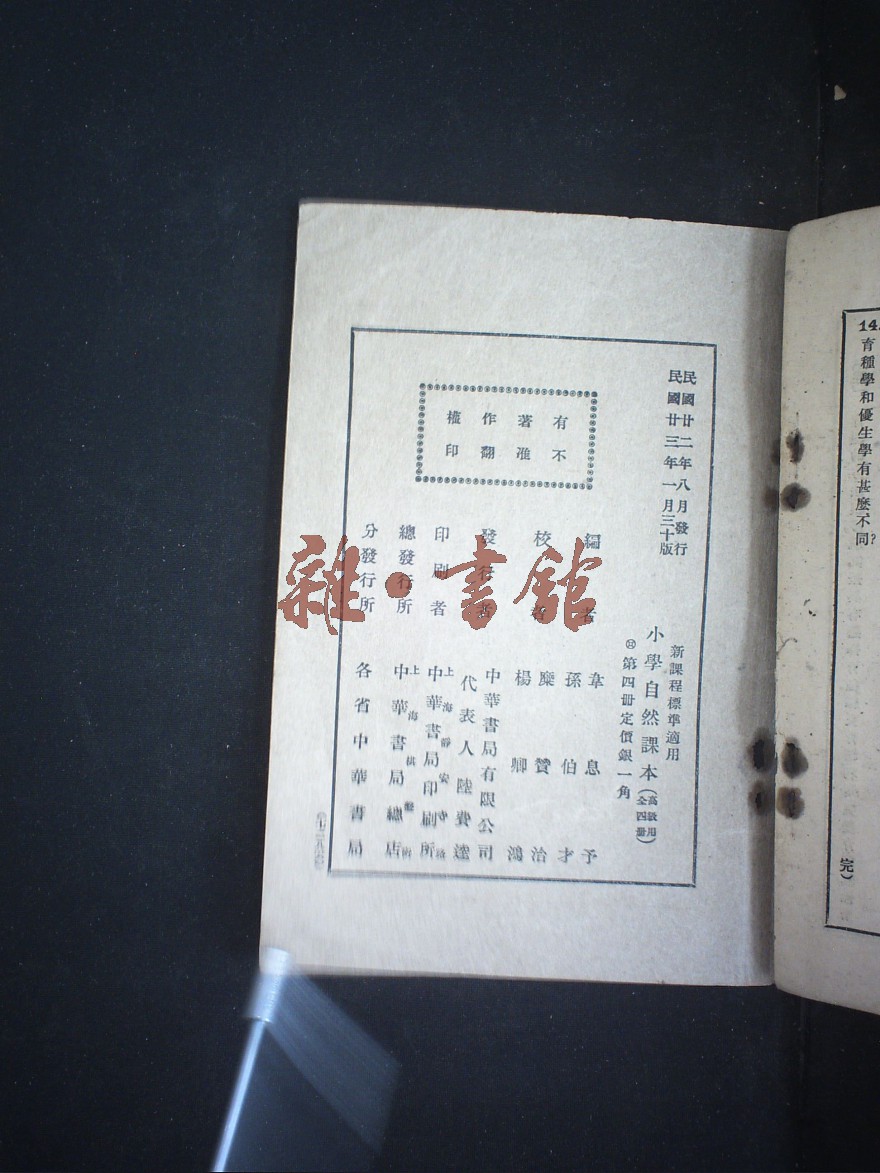 14.
育種學和優生學有甚麼不同?
完)
民國廿二年八月發行
民國廿三年一月三十版
新課程標準適用
小學自然課本(高級用 全四冊)
第四冊定價銀一角
有著作權
不准翻印
編者 韋息予
孫伯才
校者 糜贊治
楊卿鴻
發行者 中華書局有限公司
代表人 陸費逵
印刷者 上海靜安寺路
中華書局印刷所
總發行所 上海棋盤街
中華書局總店
分發行所 各省中華書局
雜·書館